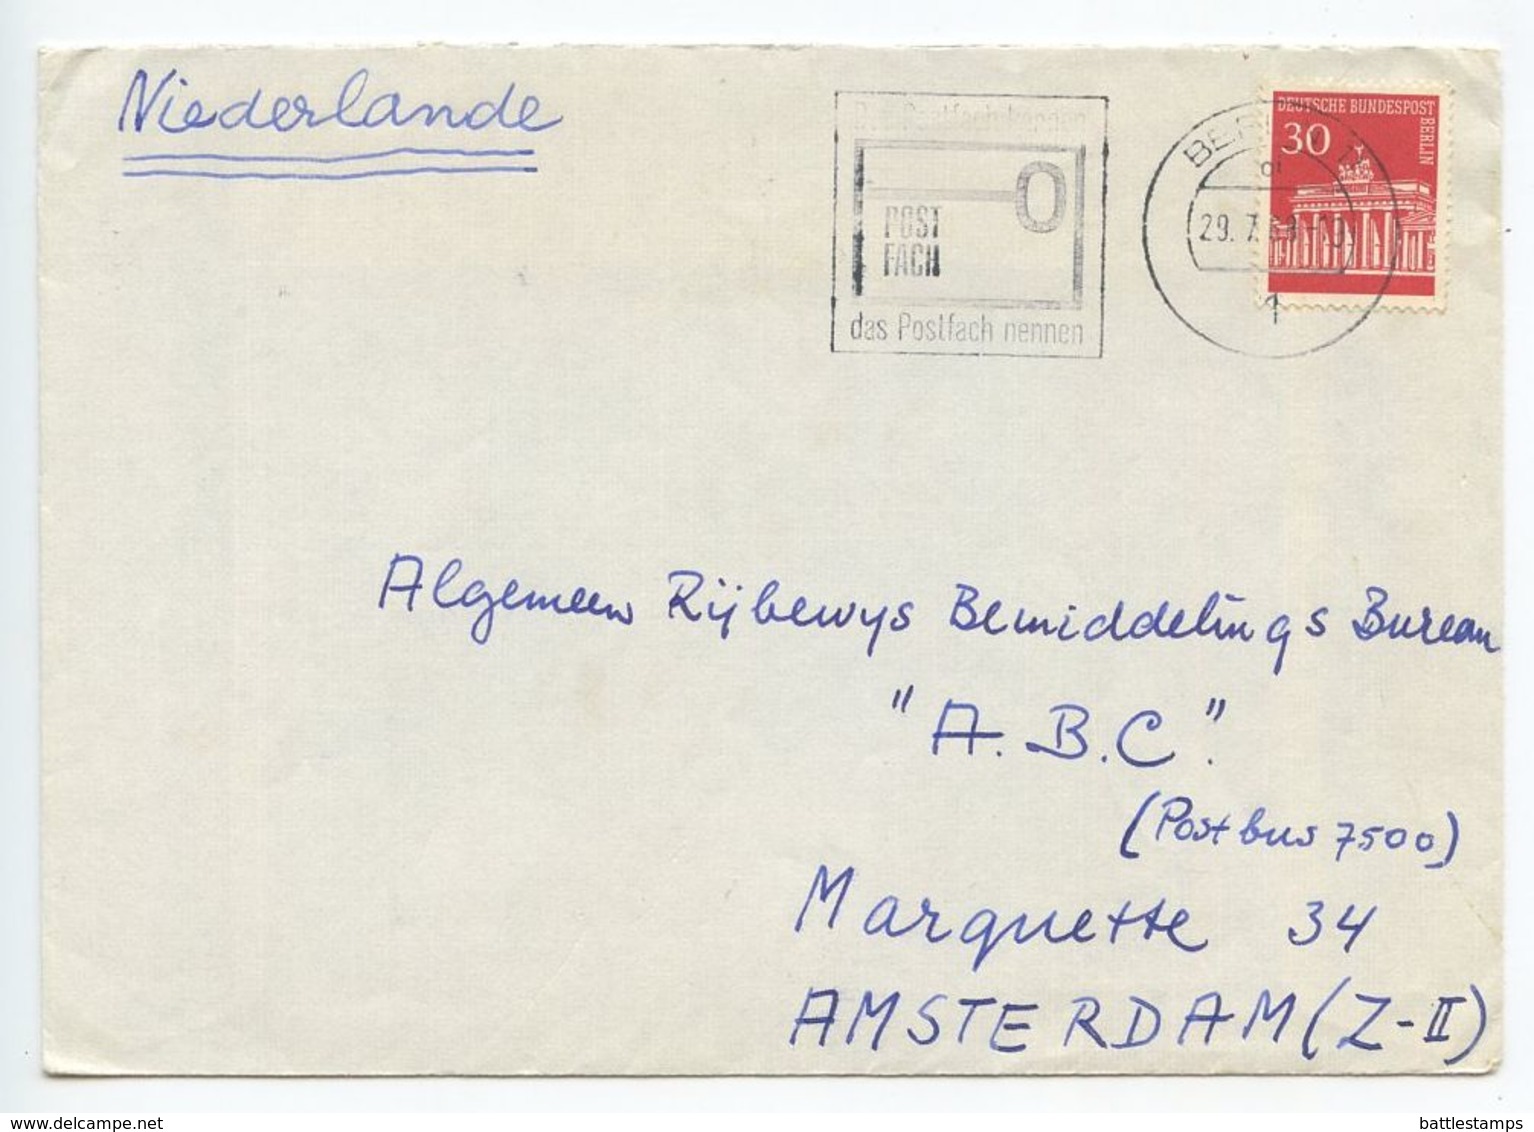 Niederlande
DEUTSCHE BUNDESPOST
BERLIN
30
POST
FACH
das Postfach nennen
29. 7.
1
Algemeen Rijbewys Bemiddelings Bureau
"A.B.C".
(Postbus 7500)
Marquette 34
AMSTERDAM (Z-II)
www.delcampe.net
battlestamps